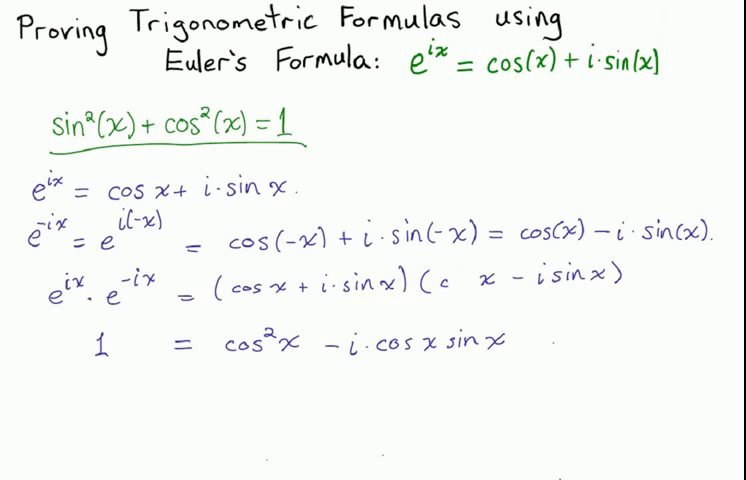 Proving Trigonometric Formulas using
Euler's Formula: e^{ix} = cos(x) + i·sin(x)
sin²(x) + cos²(x) = 1
e^{ix} = cos x + i·sin x.
e^{-ix} = e^{i(-x)} = cos(-x) + i·sin(-x) = cos(x) - i·sin(x).
e^{ix} · e^{-ix} = (cos x + i·sin x)(c x - i sin x)
1 = cos²x - i·cos x sin x